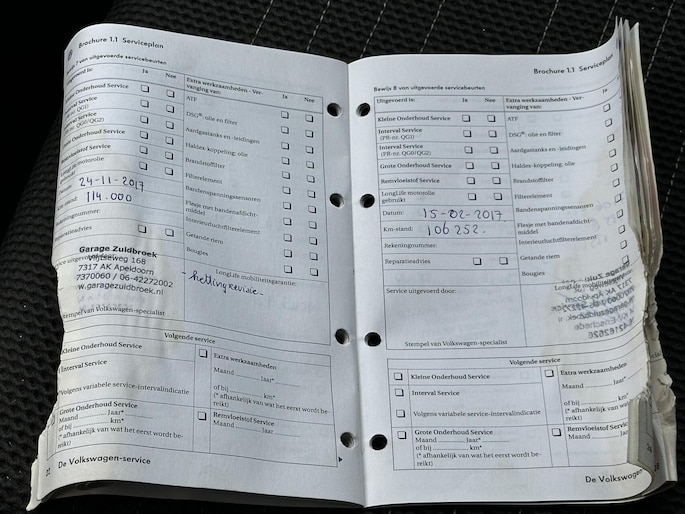 Brochure 1.1 Serviceplan
Bewijs 7 van uitgevoerde servicebeurten
Uitgevoerd is: Ja Nee
Kleine Onderhoud Service
Interval Service
(PR-nr. QG1)
Interval Service
(PR-nr. QG0/QG2)
Grote Onderhoud Service
Remvloeistof Service
LongLife motorolie
gebruikt
Datum: 24-11-2017
Km-stand: 114.000
Rekeningnummer:
Reparatieadvies
Garage Zuidbroek
Vlijtseweg 168
7317 AK Apeldoorn
7370060 / 06-42272002
www.garagezuidbroek.nl
Stempel van Volkswagen-specialist
Extra werkzaamheden - Ver-
vanging van: Ja Nee
ATF
DSG®: olie en filter
Aardgastanks en -leidingen
Haldex-koppeling: olie
Brandstoffilter
Filterelement
Bandenspanningssensoren
Flesje met bandenafdicht-
middel
Interieurluchtfilterelement
Getande riem
Bougies
LongLife mobiliteitsgarantie:
- kettingrevisie -
Volgende service
Kleine Onderhoud Service
Interval Service
Volgens variabele service-intervalindicatie
Grote Onderhoud Service
Maand Jaar*
of bij km*
(* afhankelijk van wat het eerst wordt be-
reikt)
Extra werkzaamheden
Maand Jaar*
of bij km*
(* afhankelijk van wat het eerst wordt be-
reikt)
Remvloeistof Service
Maand Jaar
22 De Volkswagen-service
Brochure 1.1 Serviceplan
Bewijs 8 van uitgevoerde servicebeurten
Uitgevoerd is: Ja Nee
Kleine Onderhoud Service
Interval Service
(PR-nr. QG1)
Interval Service
(PR-nr. QG0/QG2)
Grote Onderhoud Service
Remvloeistof Service
LongLife motorolie
gebruikt
Datum: 15-02-2017
Km-stand: 106252.
Rekeningnummer:
Reparatieadvies
Service uitgevoerd door:
Stempel van Volkswagen-specialist
Extra werkzaamheden - Ver-
vanging van: Ja
ATF
DSG®: olie en filter
Aardgastanks en -leidingen
Haldex-koppeling: olie
Brandstoffilter
Filterelement
Bandenspanningssensoren
Flesje met bandenafdicht-
middel
Interieurluchtfilterelement
Getande riem
Bougies
Volgende service
Kleine Onderhoud Service
Interval Service
Volgens variabele service-intervalindicatie
Grote Onderhoud Service
Maand Jaar*
of bij km*
(* afhankelijk van wat het eerst wordt be-
reikt)
Extra werkzaamheden
Maand Jaar*
of bij km*
(* afhankelijk van wat het eerst wordt be-
reikt)
Remvloeistof Service
Maand Jaar
De Volkswagen-service